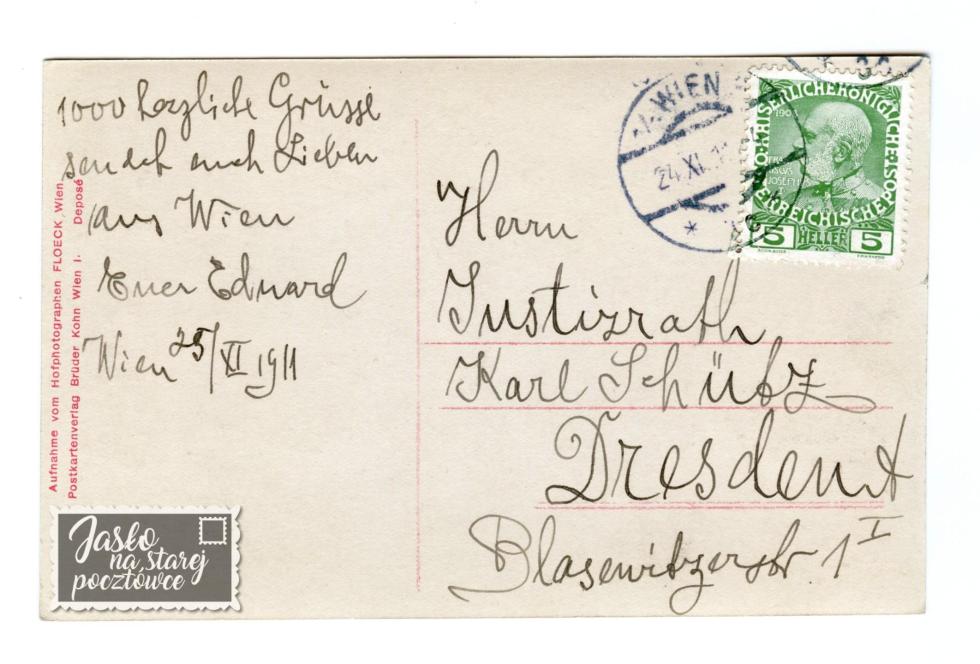 1000 herzliche Grüsse
sendet euch Lieben
aus Wien
Euer Eduard
Wien 25/XI 1911
Aufnahme vom Hofphotographen FLOECK, Wien
Postkartenverlag Brüder Kohn Wien I. Deposé
WIEN
24.XI.
KAISERLICHE KÖNIGLICHE
ÖSTERREICHISCHE POST
1908
FRANCISCUS JOSEPH I
5 HELLER 5
Herrn
Justizrath
Karl Schütz
Dresden A
Blasewitzerstr 1 I
Jasło
na starej
pocztówce